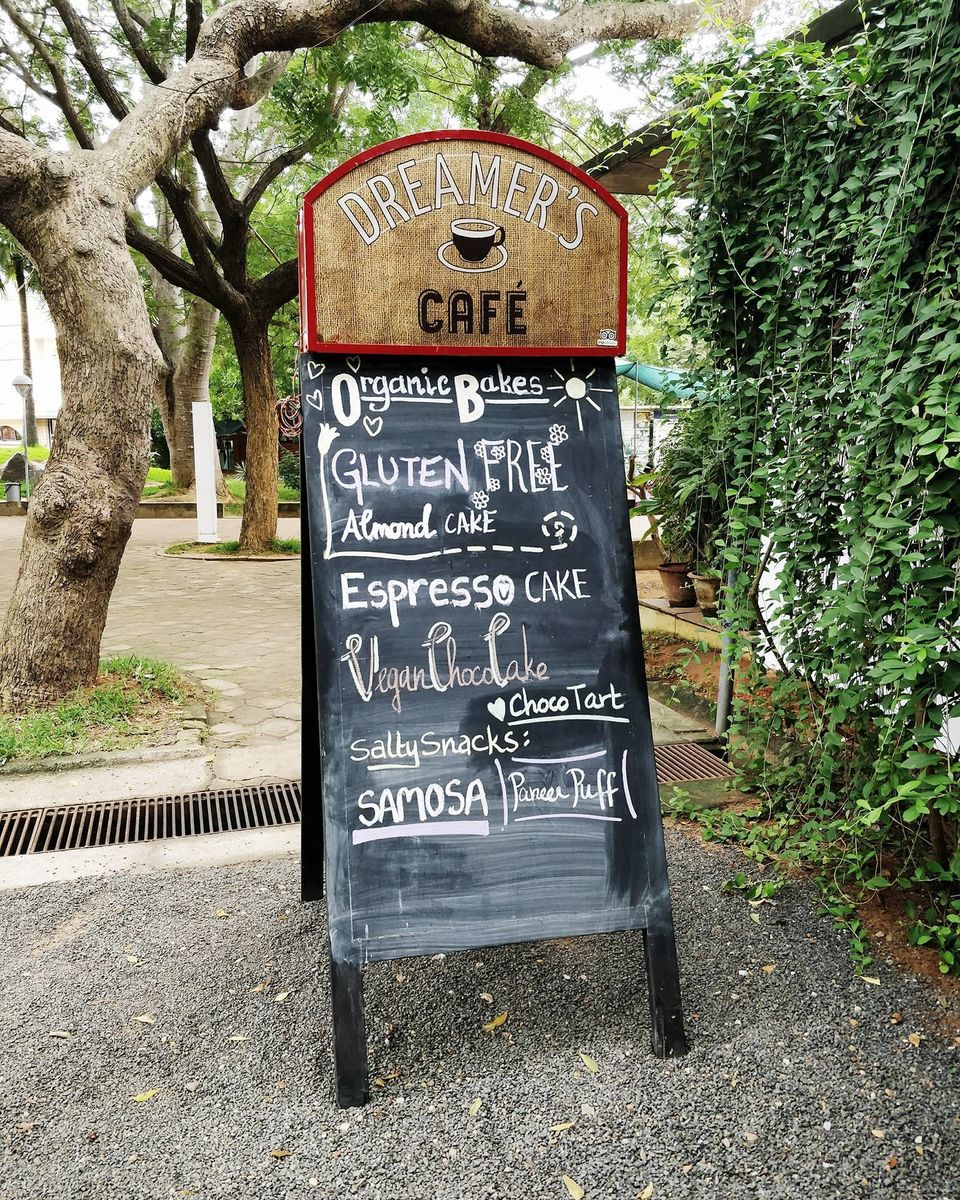 DREAMER'S
CAFÉ
Organic Bakes
GLUTEN FREE
Almond CAKE
Espresso CAKE
Vegan Choco Cake
Choco Tart
Salty Snacks:
SAMOSA
Paneer Puff